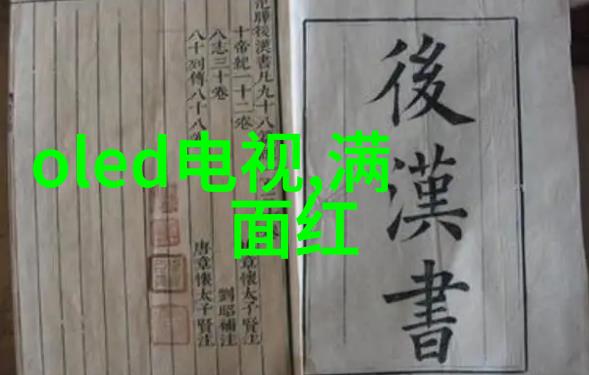 oled电视,满
面红
後漢書
後漢書凡九十八
十帝紀一十二卷
章懷太子賢注
八志三十卷
劉昭補注
八十列傳八十八
唐章懷太子賢注